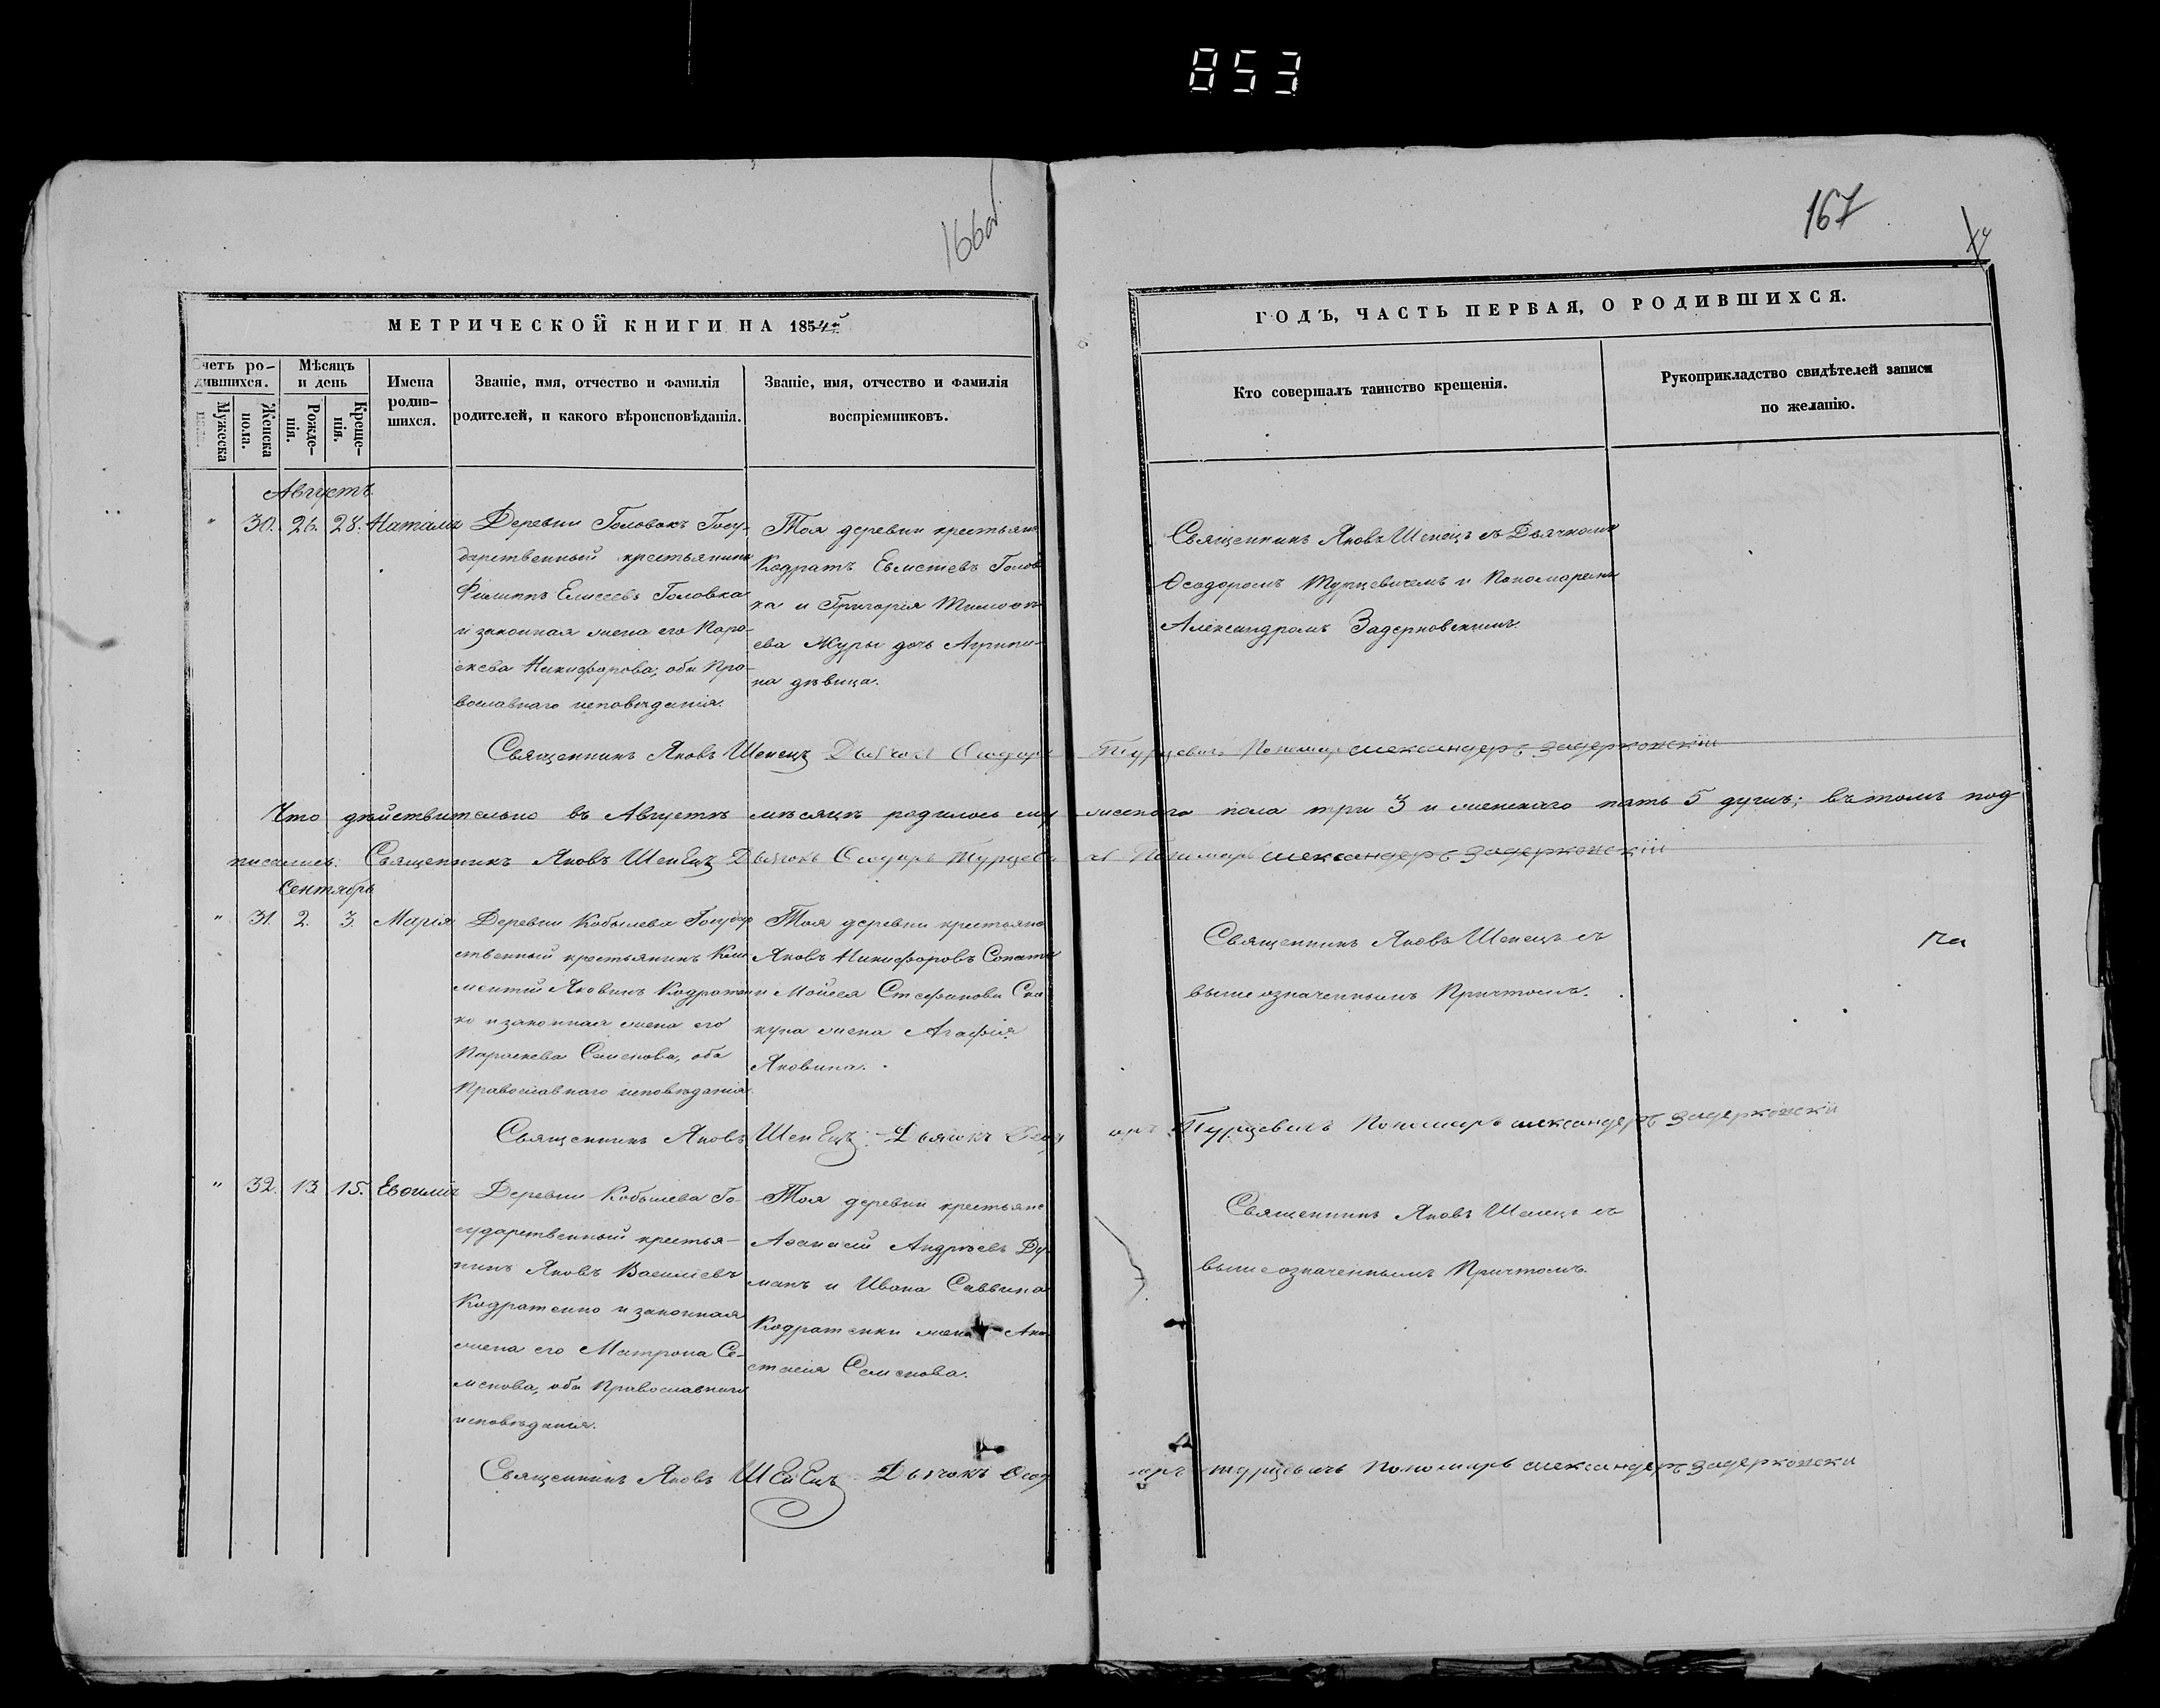 853
166об
167
МЕТРИЧЕСКОЙ КНИГИ НА 1854й
ГОДЪ, ЧАСТЬ ПЕРВАЯ, О РОДИВШИХСЯ.
Счетъ родившихся.
Мужеска пола.
Женска пола.
Мѣсяцъ и день
Рожденія.
Крещенія.
Имена родившихся.
Званіе, имя, отчество и фамилія
родителей, и какого вѣроисповѣданія.
Званіе, имя, отчество и фамилія
воспріемниковъ.
Кто совершалъ таинство крещенія.
Рукоприкладство свидѣтелей записи
по желанію.
Августъ.
" 30. 26. 28. Наталія
Деревни Головокъ Госу-
дарственный крестьянинъ
Филиппъ Елисеевъ Головка
и законная жена его Пара-
скева Никифорова, оба Пра-
вославнаго исповѣданія.
Тоя деревни крестьяне
Кодратъ Головка
и Григорія Тимофе-
ева Журы дочь Агрипи-
на дѣвица.
Священникъ Яковъ Шепецъ съ Дьячкомъ
Ѳеодоромъ Турцевичемъ и Пономаремъ
Александромъ Задерковскимъ.
Священникъ Яковъ Шепецъ Дьячокъ Ѳеодоръ Турцевичъ Пономаръ александеръ Задерковскій
Что дѣйствительно въ Августѣ мѣсяцѣ родилось мужескаго пола три 3 и женскаго пять 5 душъ; въ томъ под
писались: Священникъ Яковъ Шепецъ Дьячокъ Ѳеодоръ Турцевичъ Пономаръ александеръ Задерковскій
Сентябрь
" 31. 2. 3. Марія
Деревни Кобылева Государ
ственный крестьянинъ Кли
ментій Яковинъ Кодратен
ко и законная жена его
Параскева Семенова, оба
Православнаго исповѣданія.
Тоя деревни крестьяне
Яковъ Никифоровъ
и Мойсея Стефанова
жена Агафія
Яковина.
Священникъ Яковъ Шепецъ съ
вышеозначеннымъ Причтомъ.
Священникъ Яковъ Шепецъ. Дьячокъ Ѳеодоръ Турцевичъ Пономаръ александеръ Задерковскій
" 32. 13. 15. Евфимія
Деревни Кобылева Го-
сударственный крестья-
нинъ Яковъ Василіевъ
Кодратенко и законная
жена его Матрона Се-
менова, оба Православнаго
исповѣданія.
Тоя деревни крестьяне
Аѳанасій Андрѣевъ Ду-
манъ и Ивана Саввина
Кодратенки жена Ана-
стасія Семенова.
Священникъ Яковъ Шепецъ съ
вышеозначеннымъ Причтомъ.
Священникъ Яковъ Шепецъ. Дьячокъ Ѳеодоръ Турцевичъ Пономаръ александеръ Задерковскій